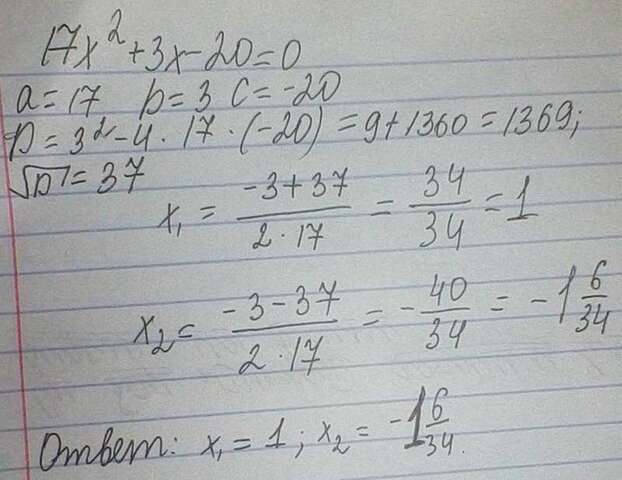 17x² + 3x - 20 = 0
a = 17 b = 3 c = -20
D = 3² - 4 · 17 · (-20) = 9 + 1360 = 1369;
√D = 37
x₁ = (-3 + 37)/(2 · 17) = 34/34 = 1
x₂ = (-3 - 37)/(2 · 17) = -40/34 = -1 6/34
Ответ: x₁ = 1 ; x₂ = -1 6/34.